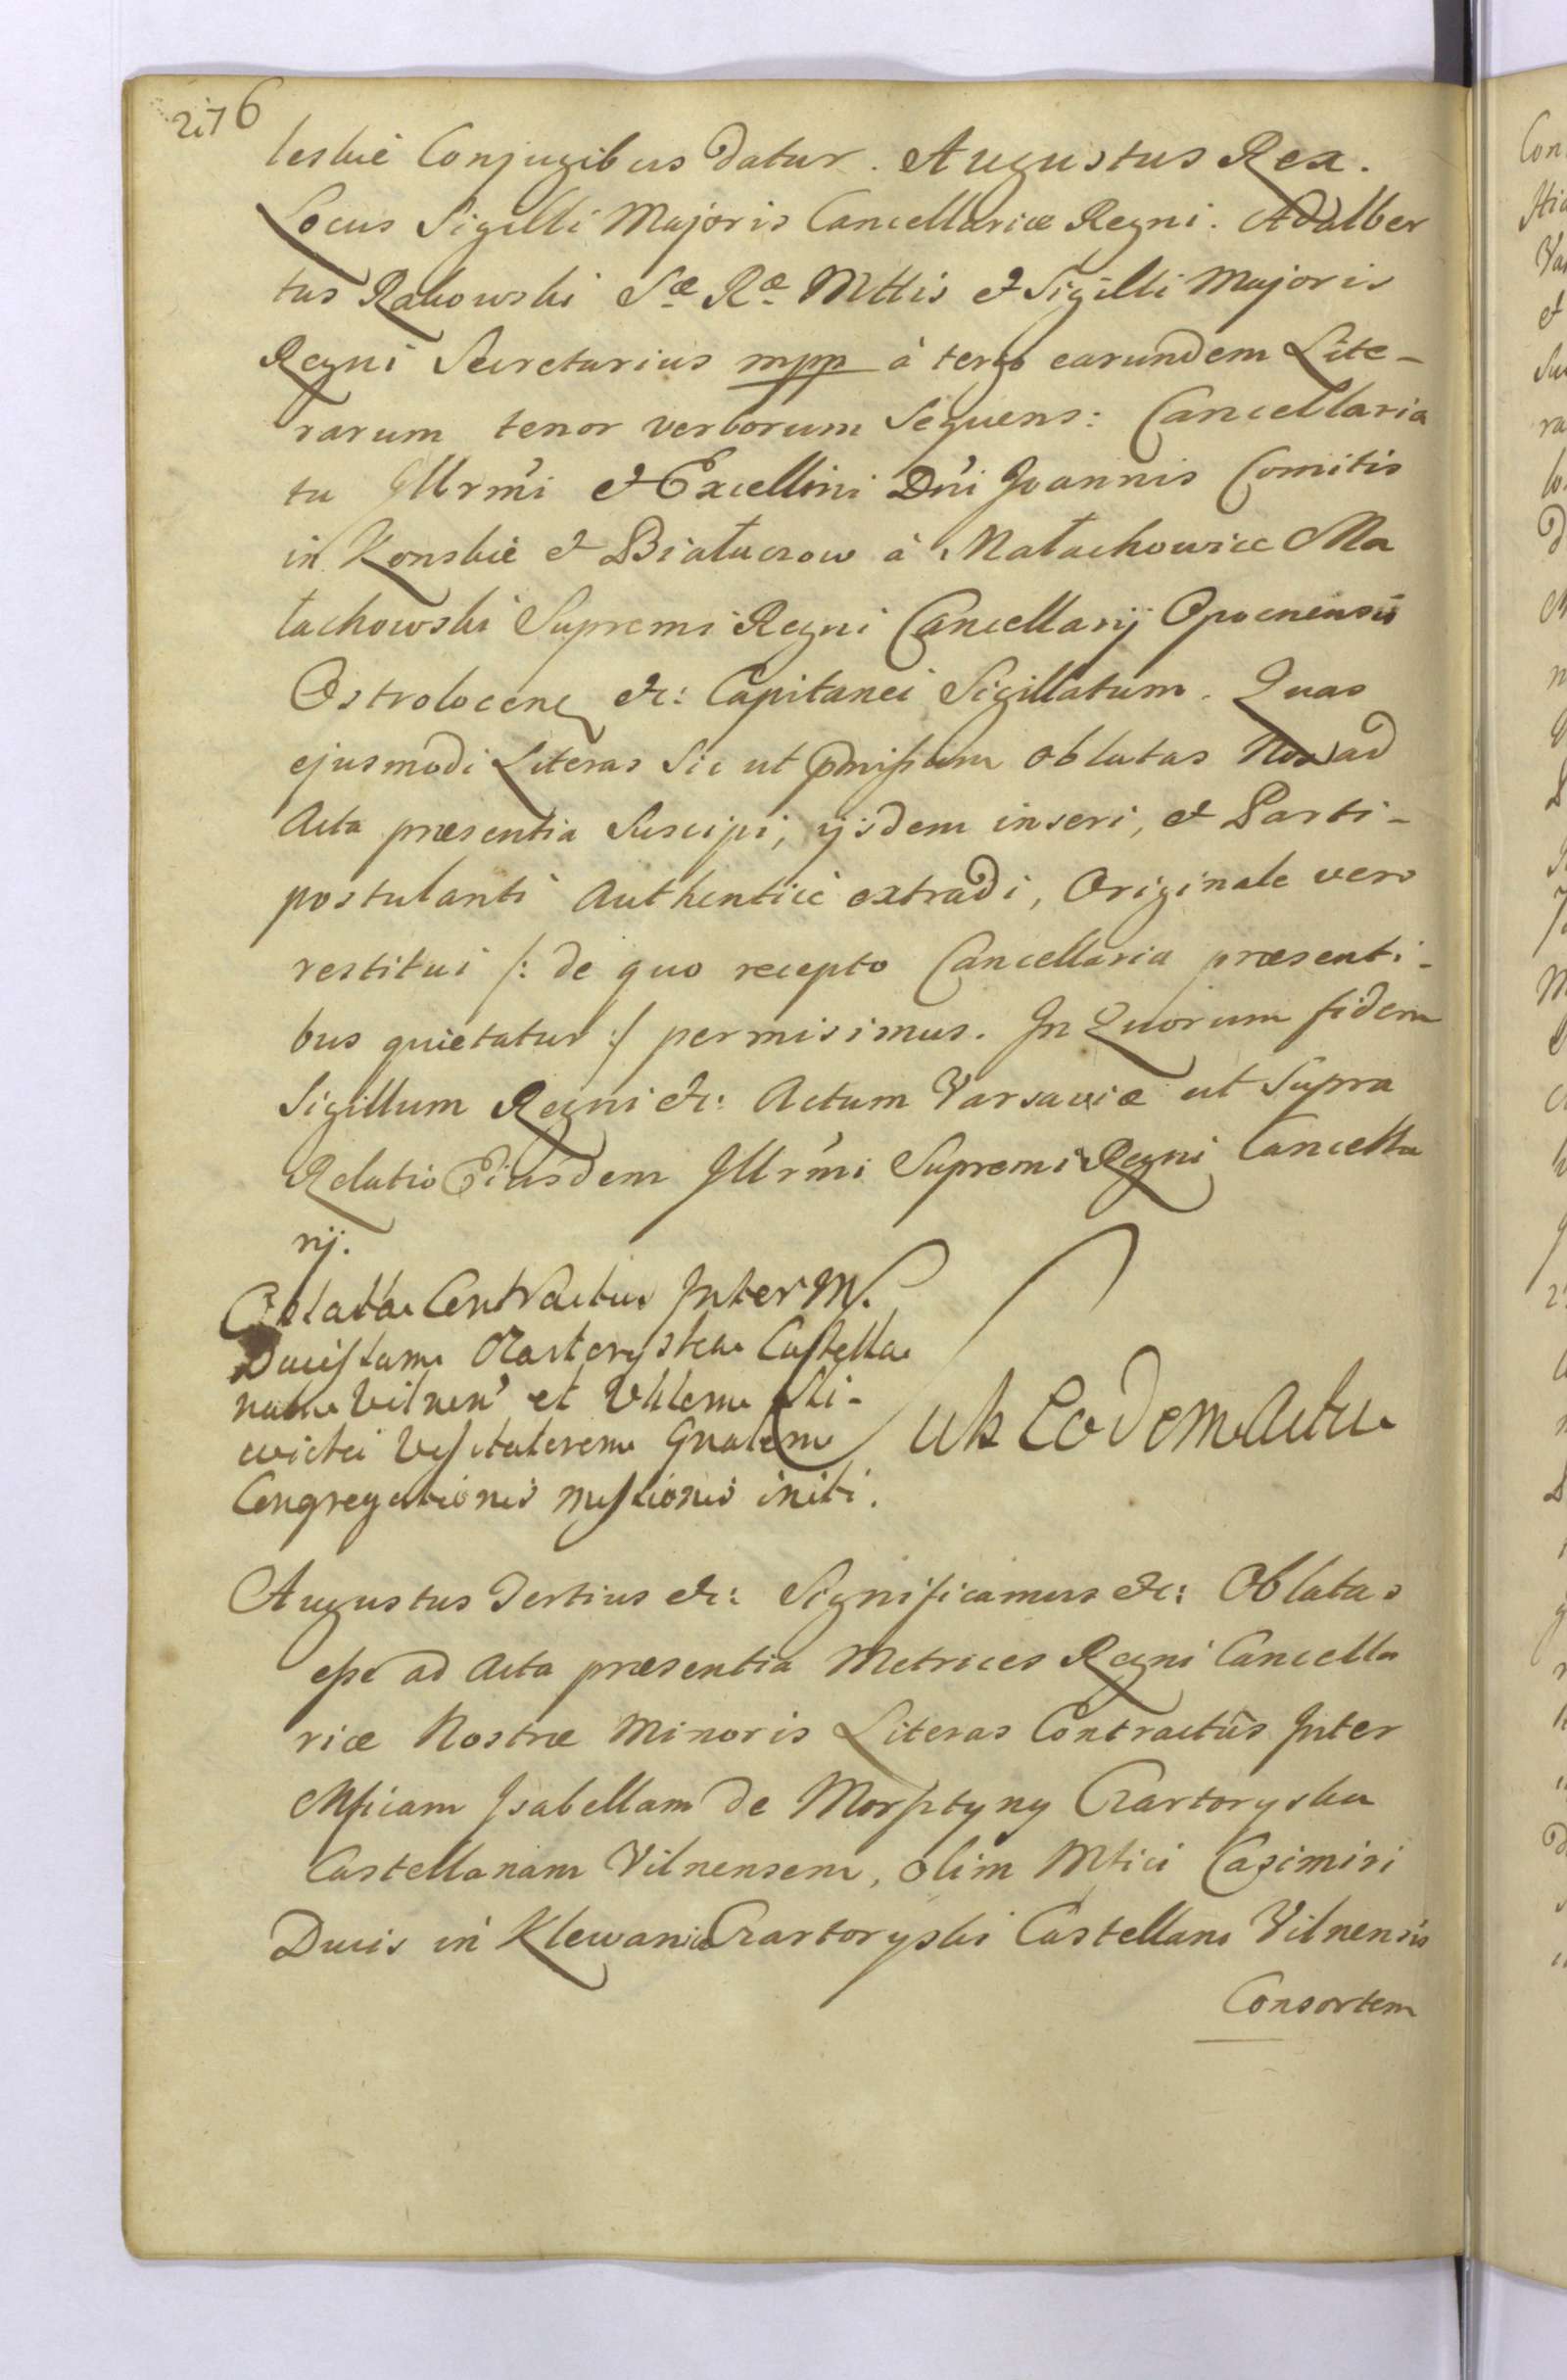 276
leskie Conjugibus datur. Augustus Rex.
Locus Sigilli Majoris Cancellariæ Regni. Adalber
tus Rakowski Sæ Ræ Mttis et Sigilli Majoris
Regni Secretarius mpp à tergo earundem Lite-
rarum tenor verborum Sequens: Cancellaria
tu Jllrmi et Excellmi Dni Joannis Comitis
in Konskie et Białaczow à Małachowice Ma
łachowski Supremi Regni Cancellarij Opocnensis
Ostrolocen et: Capitanei Sigillatum. Quas
ejusmodi Literas Sic ut pmissum oblatas Nos ad
Acta præsentia Suscipi, ijsdem inseri, et Parti-
postulanti Authenticè extradi, Originale vero
restitui /: de quo recepto Cancellaria præsenti-
bus quietatur :/ permisimus. In Quorum fidem
Sigillum Regni et: Actum Varsaviæ ut Supra
Relatio Eiusdem Jllrmi Supremi Regni Cancella
rij.
Oblata Contractus Inter M.
Ducissam Czartoryska Castella
nam Vilnen et Sli-
wicki Visitatorem Gnalem
Congregationis Missionis initi.
ut Eodem Actu
Augustus Tertius et: Significamus et: Oblatas
esse ad Acta præsentia Metrices Regni Cancella
riæ Nostræ Minoris Literas Contractûs Inter
Mficam Isabellam de Morsztyny Czartoryska
Castellanam Vilnensem, olim Mfici Casimiri
Ducis in Klewanie Czartoryski Castellani Vilnensis
Consortem